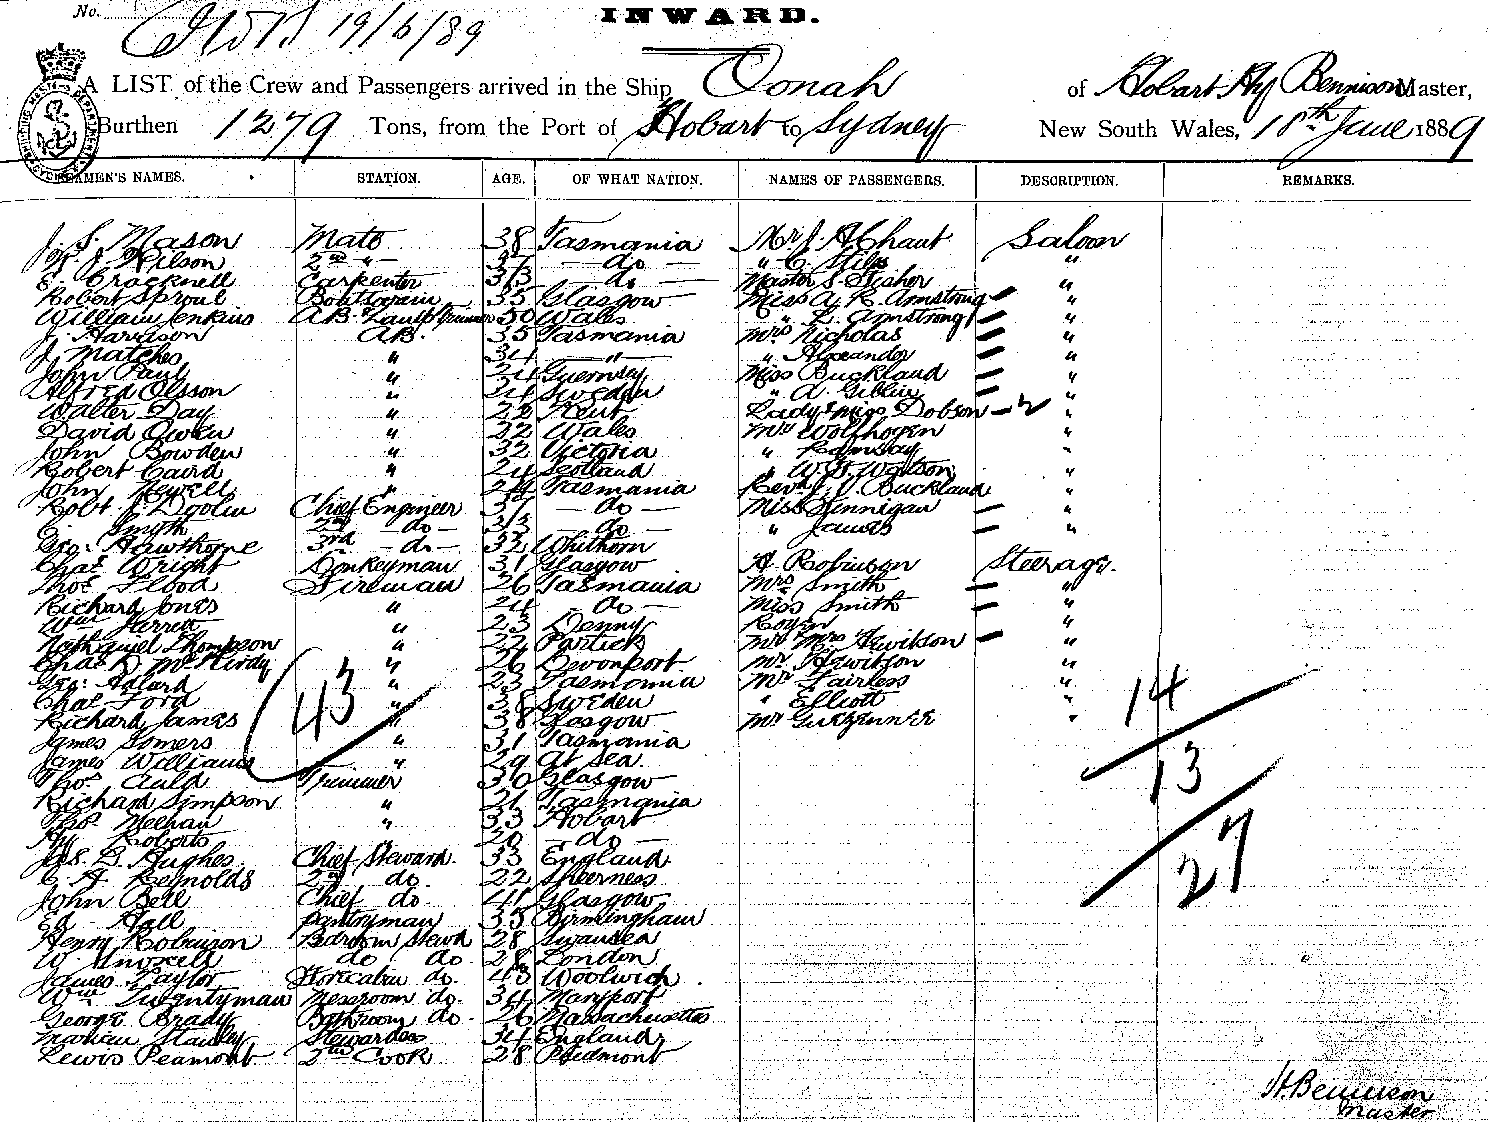 No. 19/6/89
INWARD.
A LIST of the Crew and Passengers arrived in the Ship Oonah of Hobart Hy Bennison Master,
Burthen 1279 Tons, from the Port of Hobart to Sydney New South Wales, 18th June 1889
SEAMEN'S NAMES. STATION. AGE. OF WHAT NATION. NAMES OF PASSENGERS. DESCRIPTION. REMARKS.
J. S. Mason Mate 38 Tasmania Mr J. A. Chaut Saloon
J. Wilson 2nd " 37 — do — " C. Stiles "
E. Cracknell Carpenter 33 do — Master S. Fisher "
Robert Sproul Boatswain 35 Glasgow Miss A. R. Armstrong "
William Jenkins AB. Lamp Trimmer 50 Wales " L. Armstrong "
J. Harrison AB. 35 Tasmania Mrs Nicholas "
J. Matches " 34 — " — " Alexander "
John Paul " 24 Guernsey Miss Buckland "
Alfred Olsson " 24 Sweden " A. Giblin "
Walter Day " 22 Kent Lady & Miss Dobson — 2 "
David Owen " 22 Wales Mr Wolfhagen "
John Bowden " 32 Victoria " Ramsay "
Robert Caird " 24 Scotland " W. H. Watson "
John Newell " 24 Tasmania Revd J. V. Buckland "
Robt J. Doolin Chief Engineer 37 — do — Miss Finnigan "
Smith 2nd — do — 33 — do — " James "
Geo. Hawthorne 3rd — do — 32 Whithorn
Chas Wright Donkeyman 31 Glasgow A. Robinson Steerage.
Thos Flood Fireman 26 Tasmania Mrs Smith "
Richard Jones " 24 — do — Miss Smith "
Wm Jarrett " 23 Denny "
Nathaniel Thompson " 22 Partick Mr Mrs Hewitson "
Chas D. McKirdy " 26 Devonport Mr Hewitson "
Geo. Adlard " 23 Tasmania Mr Fairless "
Chas Ford " 38 Sweden " Elliott "
Richard James " 38 Glasgow Mr "
James Somers " 31 Tasmania
James Williams " 29 At Sea.
Thos Auld Trimmer 30 Glasgow
Richard Simpson " 21 Tasmania
Thos Meehan " 33 Hobart
Hy Roberts 20 — do —
Jas. G. Hughes Chief Steward. 33 England
C. A. Reynolds 2nd do. 22 Sheerness
John Bell Chief do. 41 Glasgow
Ed. Hall Pantryman 35 Birmingham
Henry Robinson Bedroom Stewd 28 Swansea
W. do do 28 London
James Taylor Storecabin do. 43 Woolwich
Wm Twentyman Messroom do. 34 Maryport
George Brady Bathroom do. 26 Massachusetts
Stanley Stewardess 34 England
Lewis Peamont 2nd Cook 28 Piedmont
43
14
13
27
H. Bennison
Master